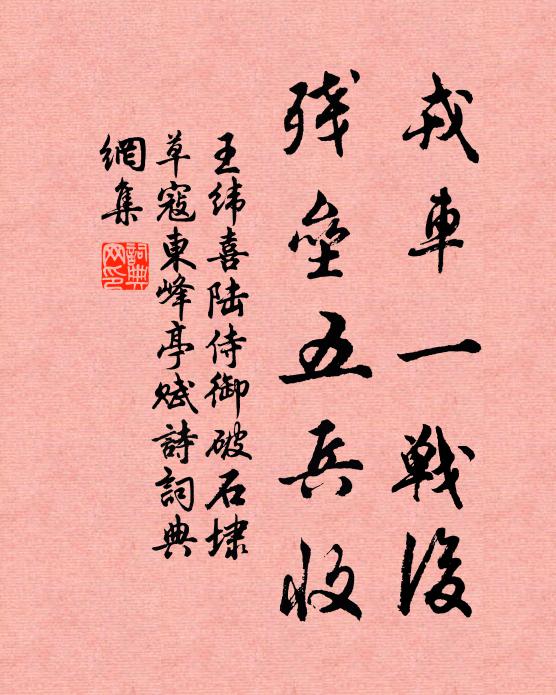 戎車一戰後
殘壘五兵收
王緯喜陸侍御破石埭
草寇東峰亭賦詩詞典
網集
詞典網印